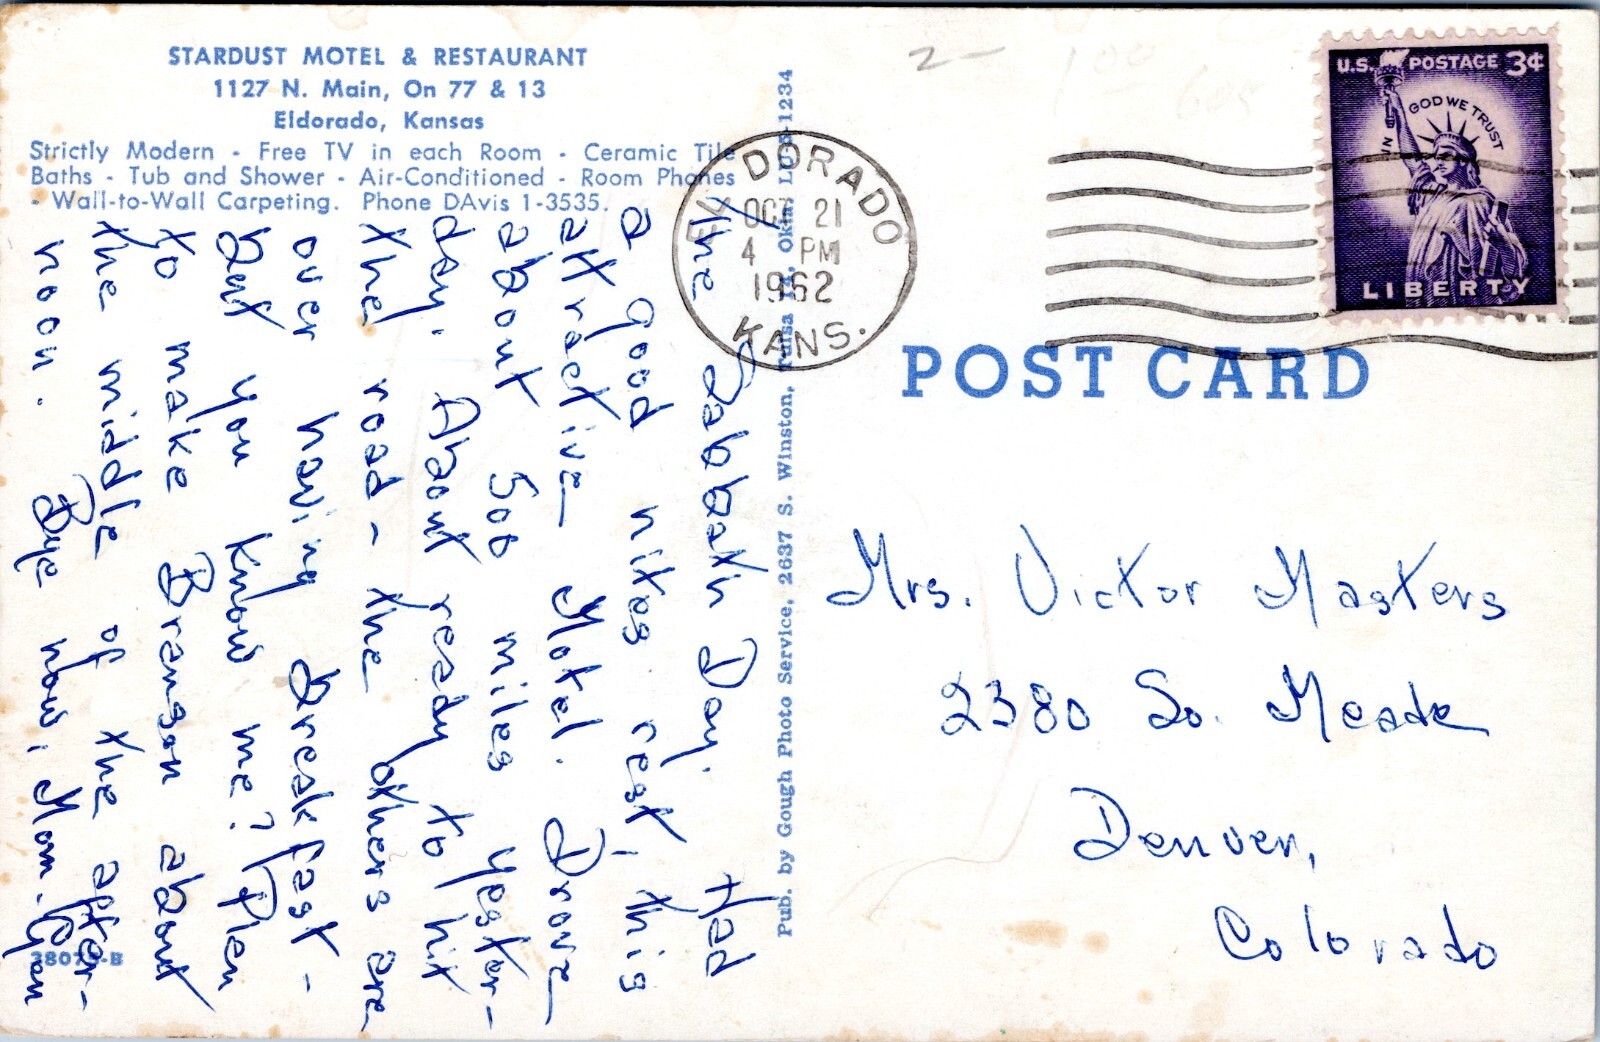 STARDUST MOTEL & RESTAURANT
1127 N. Main, On 77 & 13
Eldorado, Kansas
Strictly Modern - Free TV in each Room - Ceramic Tile
Baths - Tub and Shower - Air-Conditioned - Room Phones
- Wall-to-Wall Carpeting. Phone DAvis 1-3535.
The Sabbath Day. Had
a good nites rest, this
attractive Motel. Drove
about 500 miles yester-
day. About ready to hit
the road - the others are
over having breakfast -
But you know me? Plan
to make Branson about
the middle of the after-
noon. Bye now, Mom.
38074-B
Pub. by Gough Photo Service, 2637 S. Winston, Tulsa Okla. LU -1234
EL DORADO
OCT 21
4 PM
1962
KANS.
2-
1 00
60s
U.S. POSTAGE 3¢
IN GOD WE TRUST
LIBERTY
POST CARD
Mrs. Victor Masters
2380 So. Meade
Denver,
Colorado